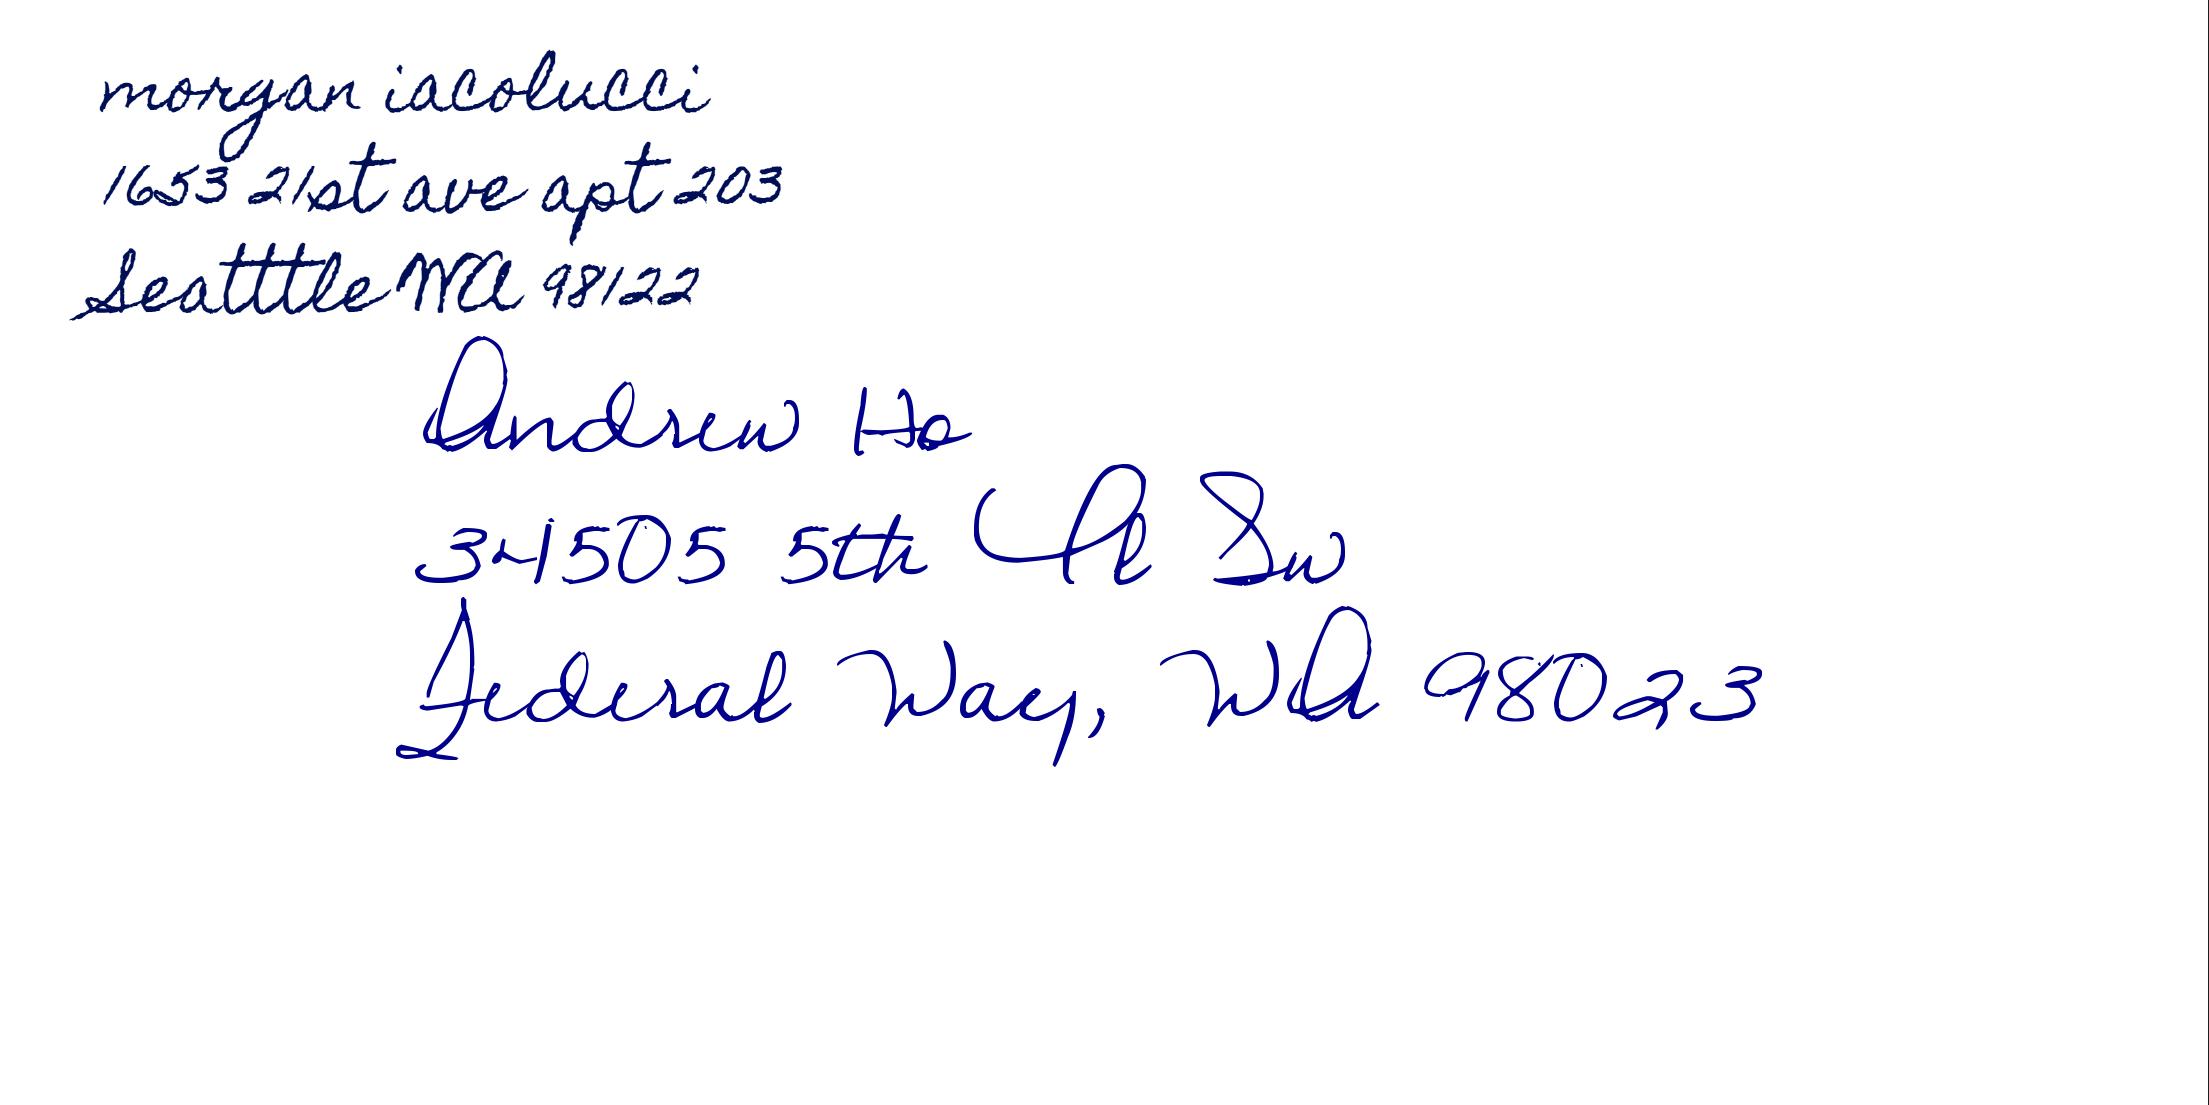 morgan iacolucci
1653 21st ave apt 203
Seatttle WA 98122
Andrew Ho
34505 5th Pl Sw
Federal Way, WA 98023